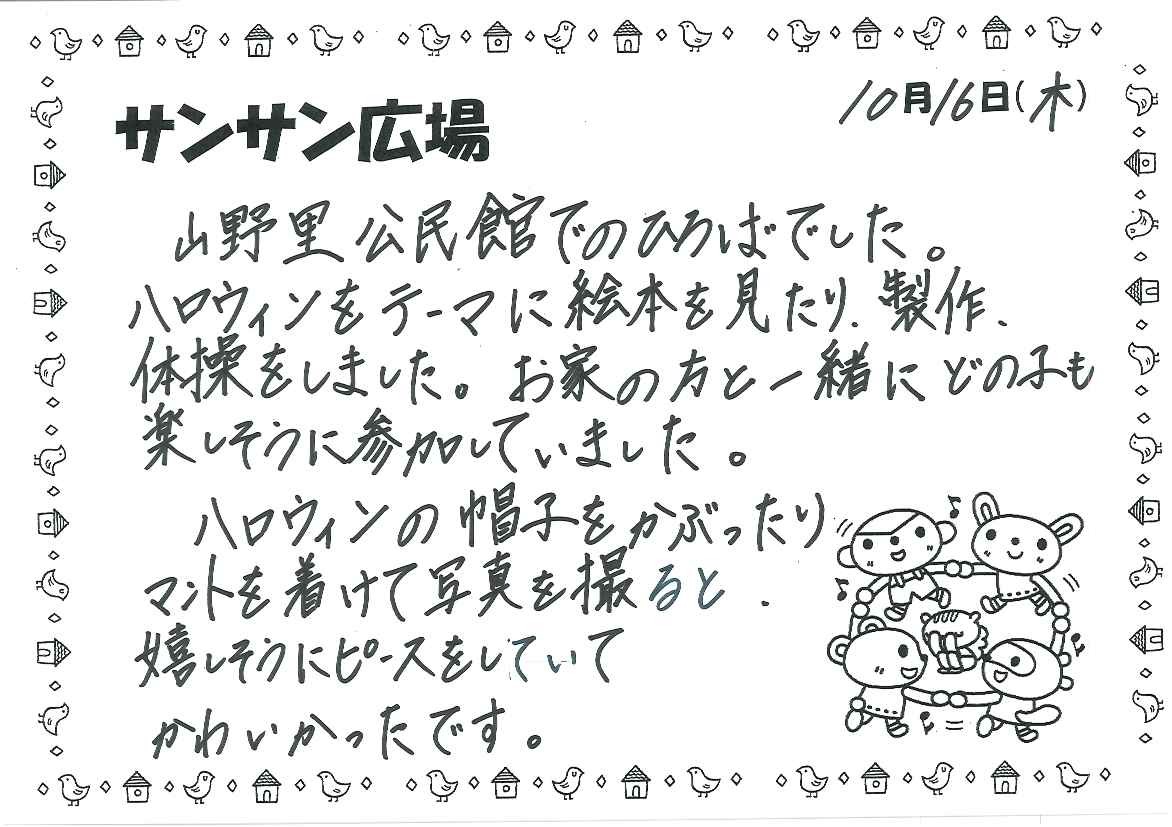 10月16日(木)
サンサン広場
山野里公民館でのひろばでした。
ハロウィンをテーマに絵本を見たり、製作、
体操をしました。お家の方と一緒にどの子も
楽しそうに参加していました。
ハロウィンの帽子をかぶったり
マントを着けて写真を撮ると、
嬉しそうにピースをしていて
かわいかったです。